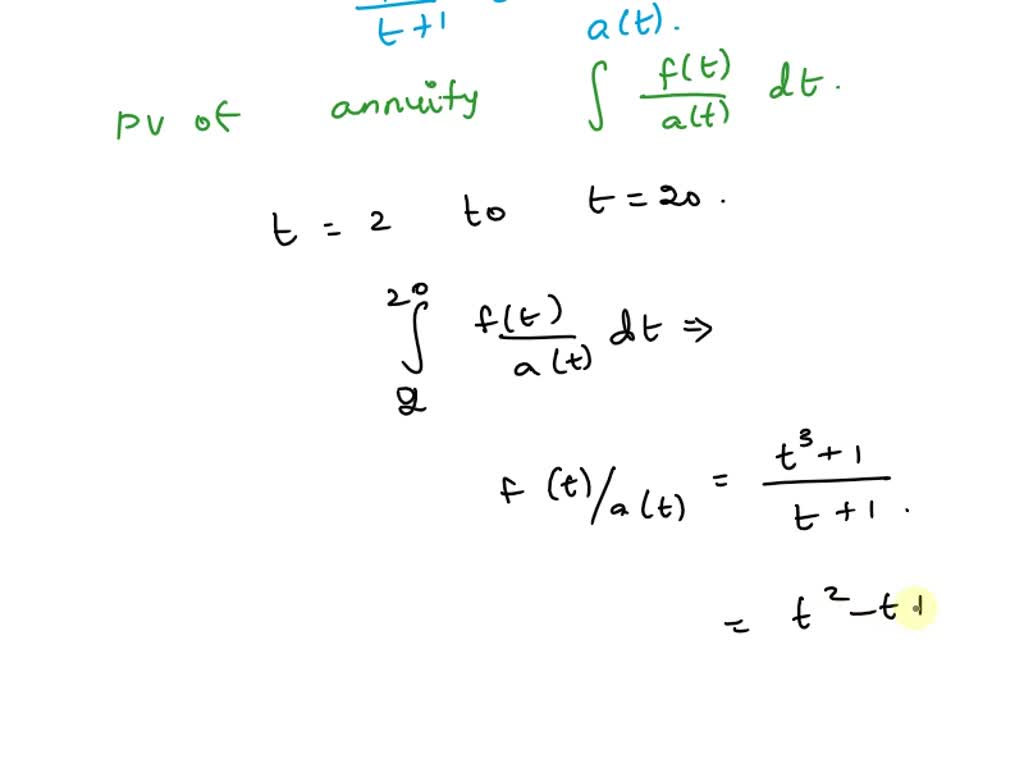 t+1
a(t).
PV of annuity ∫ f(t)/a(t) dt.
t = 2 to t = 20.
∫₂²⁰ f(t)/a(t) dt ⇒
f(t)/a(t) = (t³+1)/(t+1).
= t² - t